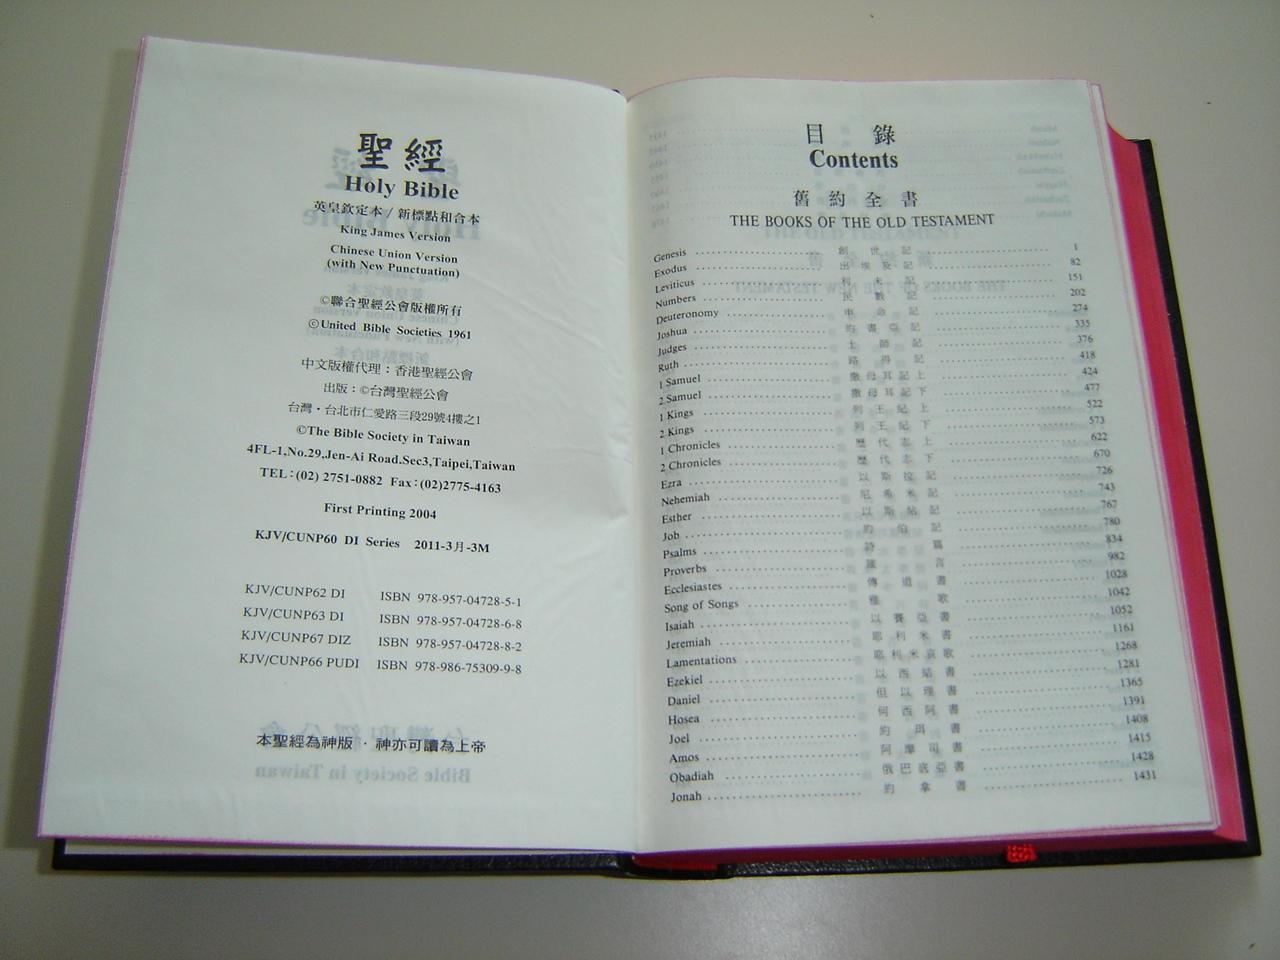 聖經
Holy Bible
英皇欽定本/新標點和合本
King James Version
Chinese Union Version
(with New Punctuation)
©聯合聖經公會版權所有
©United Bible Societies 1961
中文版權代理：香港聖經公會
出版：©台灣聖經公會
台灣·台北市仁愛路三段29號4樓之1
©The Bible Society in Taiwan
4FL-1,No.29,Jen-Ai Road.Sec3,Taipei,Taiwan
TEL:(02) 2751-0882 Fax:(02)2775-4163
First Printing 2004
KJV/CUNP60 DI Series 2011-3月-3M
KJV/CUNP62 DI ISBN 978-957-04728-5-1
KJV/CUNP63 DI ISBN 978-957-04728-6-8
KJV/CUNP67 DIZ ISBN 978-957-04728-8-2
KJV/CUNP66 PUDI ISBN 978-986-75309-9-8
本聖經為神版·神亦可讀為上帝
目錄
Contents
舊約全書
THE BOOKS OF THE OLD TESTAMENT
Genesis 創世記 1
Exodus 出埃及記 82
Leviticus 利未記 151
Numbers 民數記 202
Deuteronomy 申命記 274
Joshua 約書亞記 335
Judges 士師記 376
Ruth 路得記 418
1 Samuel 撒母耳記上 424
2 Samuel 撒母耳記下 477
1 Kings 列王紀上 522
2 Kings 列王紀下 573
1 Chronicles 歷代志上 622
2 Chronicles 歷代志下 670
Ezra 以斯拉記 726
Nehemiah 尼希米記 743
Esther 以斯帖記 767
Job 約伯記 780
Psalms 詩篇 834
Proverbs 箴言 982
Ecclesiastes 傳道書 1028
Song of Songs 雅歌 1042
Isaiah 以賽亞書 1052
Jeremiah 耶利米書 1161
Lamentations 耶利米哀歌 1268
Ezekiel 以西結書 1281
Daniel 但以理書 1365
Hosea 何西阿書 1391
Joel 約珥書 1408
Amos 阿摩司書 1415
Obadiah 俄巴底亞書 1428
Jonah 約拿書 1431